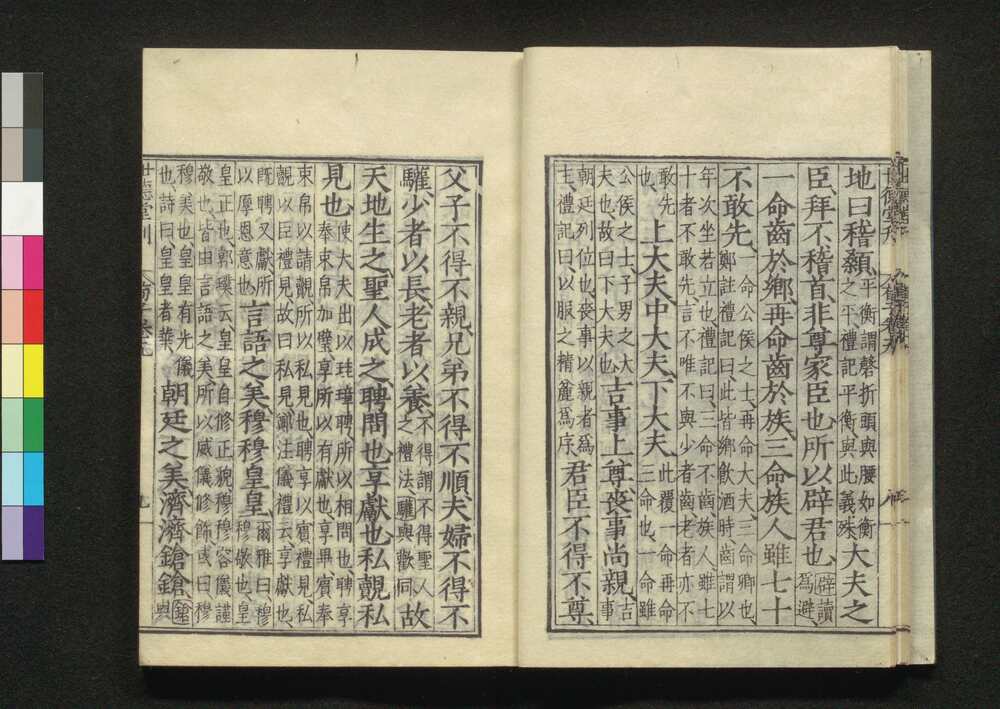 地曰稽顙、平衡謂磬折頭與腰如衡
之平禮記平衡與此義殊大夫之
臣拜不稽首、非尊家臣也、所以辟君也、辟讀
爲避、
一命齒於鄉、再命齒於族、三命族人雖七十
不敢先、一命公侯之士、再命大夫、三命卿也、
鄭註禮記曰、此皆鄉飲酒時、齒謂以
年次坐若立也禮記曰、三命不齒族人雖七
十者不敢先言不唯不與少者齒老者亦不
敢先
也、上大夫、中大夫、下大夫、此覆一命再命
三命也、一命雖
公侯之士子男之大
夫也、故曰下大夫也、吉事上尊、喪事尚親、吉
事
朝廷列位也、喪事以親者爲
主、禮記曰、以服之精麤爲序、君臣不得不尊、
父子不得不親、兄弟不得不順、夫婦不得不
驩、少者以長、老者以養、不得謂不得聖人
之禮法、驩與歡同、故
天地生之、聖人成之、聘問也、享獻也、私覿私
見也、使大夫出以珪璋聘、所以相問也、聘享
奉束帛加璧、享所以有獻也、享畢賓奉
束帛以請覿、所以私見也聘享以賓禮見、私
覿以臣禮見、故曰私見、鄭法儀禮云享獻也、
既聘又獻、所
以厚恩意也、言語之美、穆穆皇皇、爾雅曰、穆
穆敬也、皇
皇正也、郭璞云皇皇自修正貌穆穆容儀謹
敬也、皆由言語之美、所以威儀修飾或曰穆
穆美也、皇皇有光儀
也、詩曰、皇皇者華、朝廷之美、濟濟鎗鎗、鎗
與